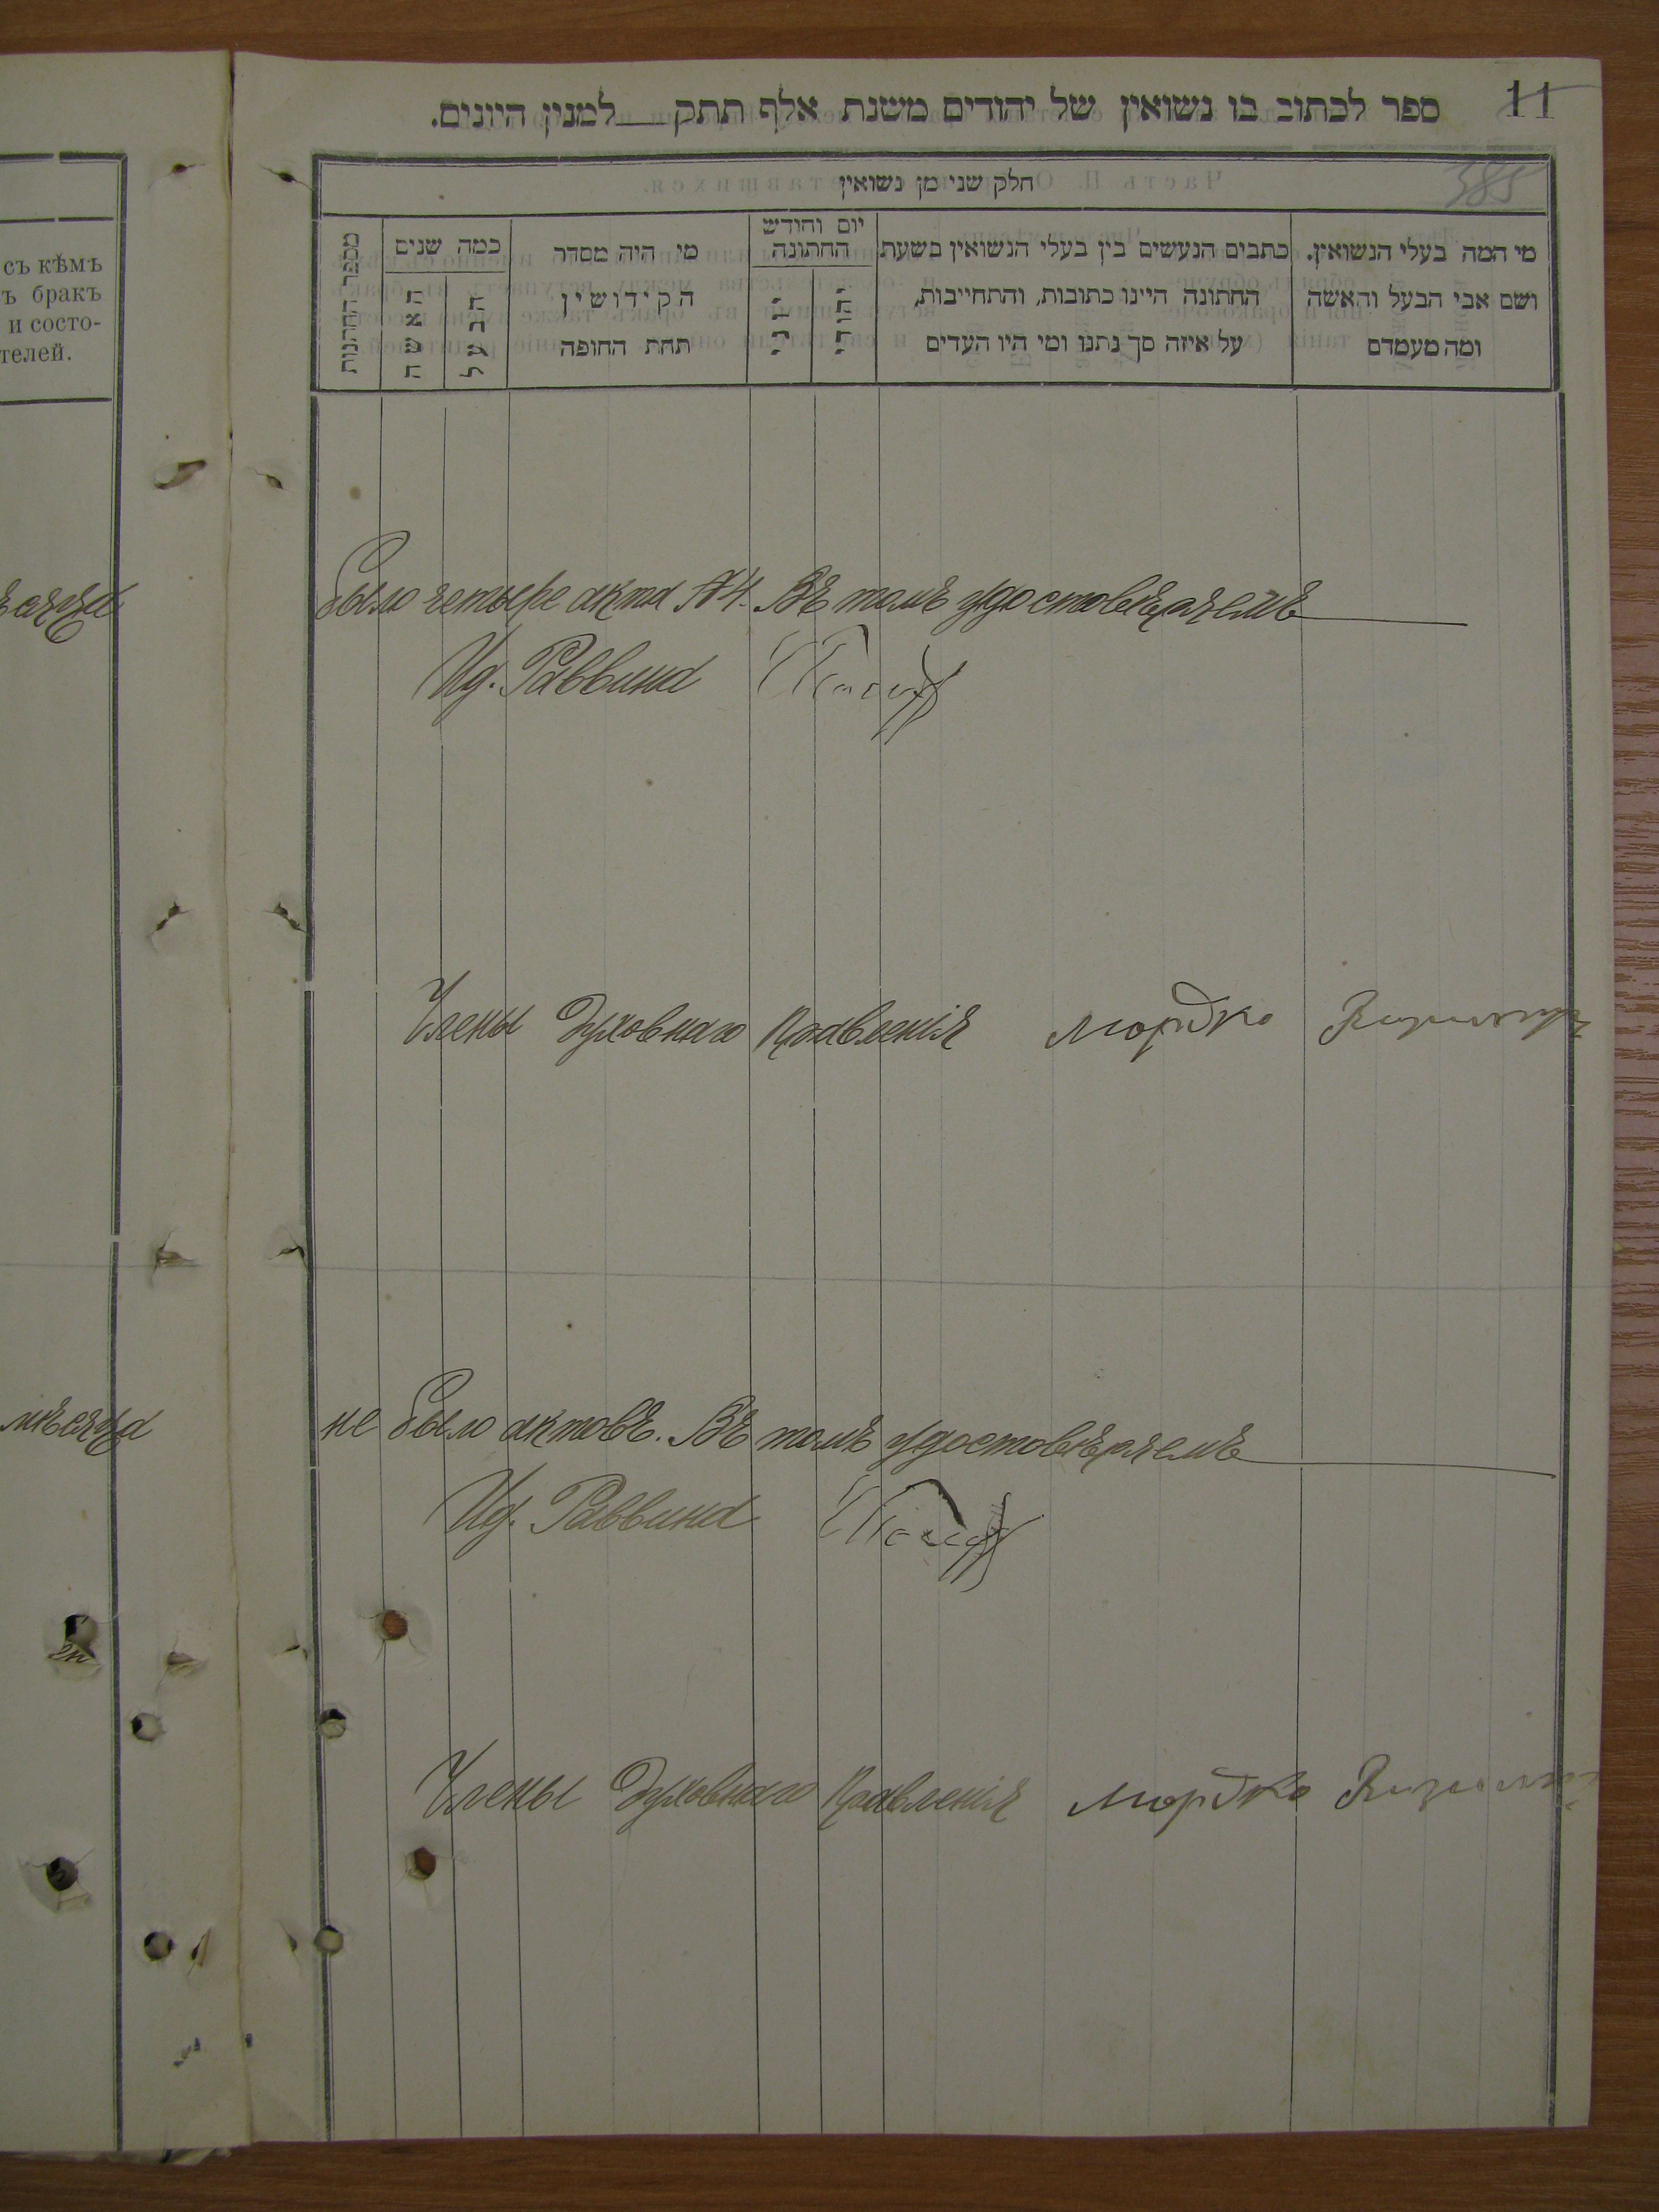 11
ספר לכתוב בו נשואין של יהודים משנת אלף תתק למנין היונים.
385
חלק שני מן נשואין
מי המה בעלי הנשואין. ושם אבי הבעל והאשה ומה מעמדם
כתבים הנעשים בין בעלי הנשואין בשעת החתונה היינו כתובות, והתחייבות, על איזה סך נתנו ומי היו העדים
יום וחודש החתונה
יהודי
יוני
מי היה מסדר הקידושין תחת החופה
כמה שנים
הבעל
האשה
מספר החתנות
съ кѣмъ
ъ бракъ
и состо-
телей.
было четыре акта №4. Въ томъ удостовѣряемъ
Ид. Раввина
Члены Духовнаго Правленія Мордко
мѣсяца
не было актовъ. Въ томъ удостовѣряемъ
Ид. Раввина
Члены Духовнаго Правленія Мордко